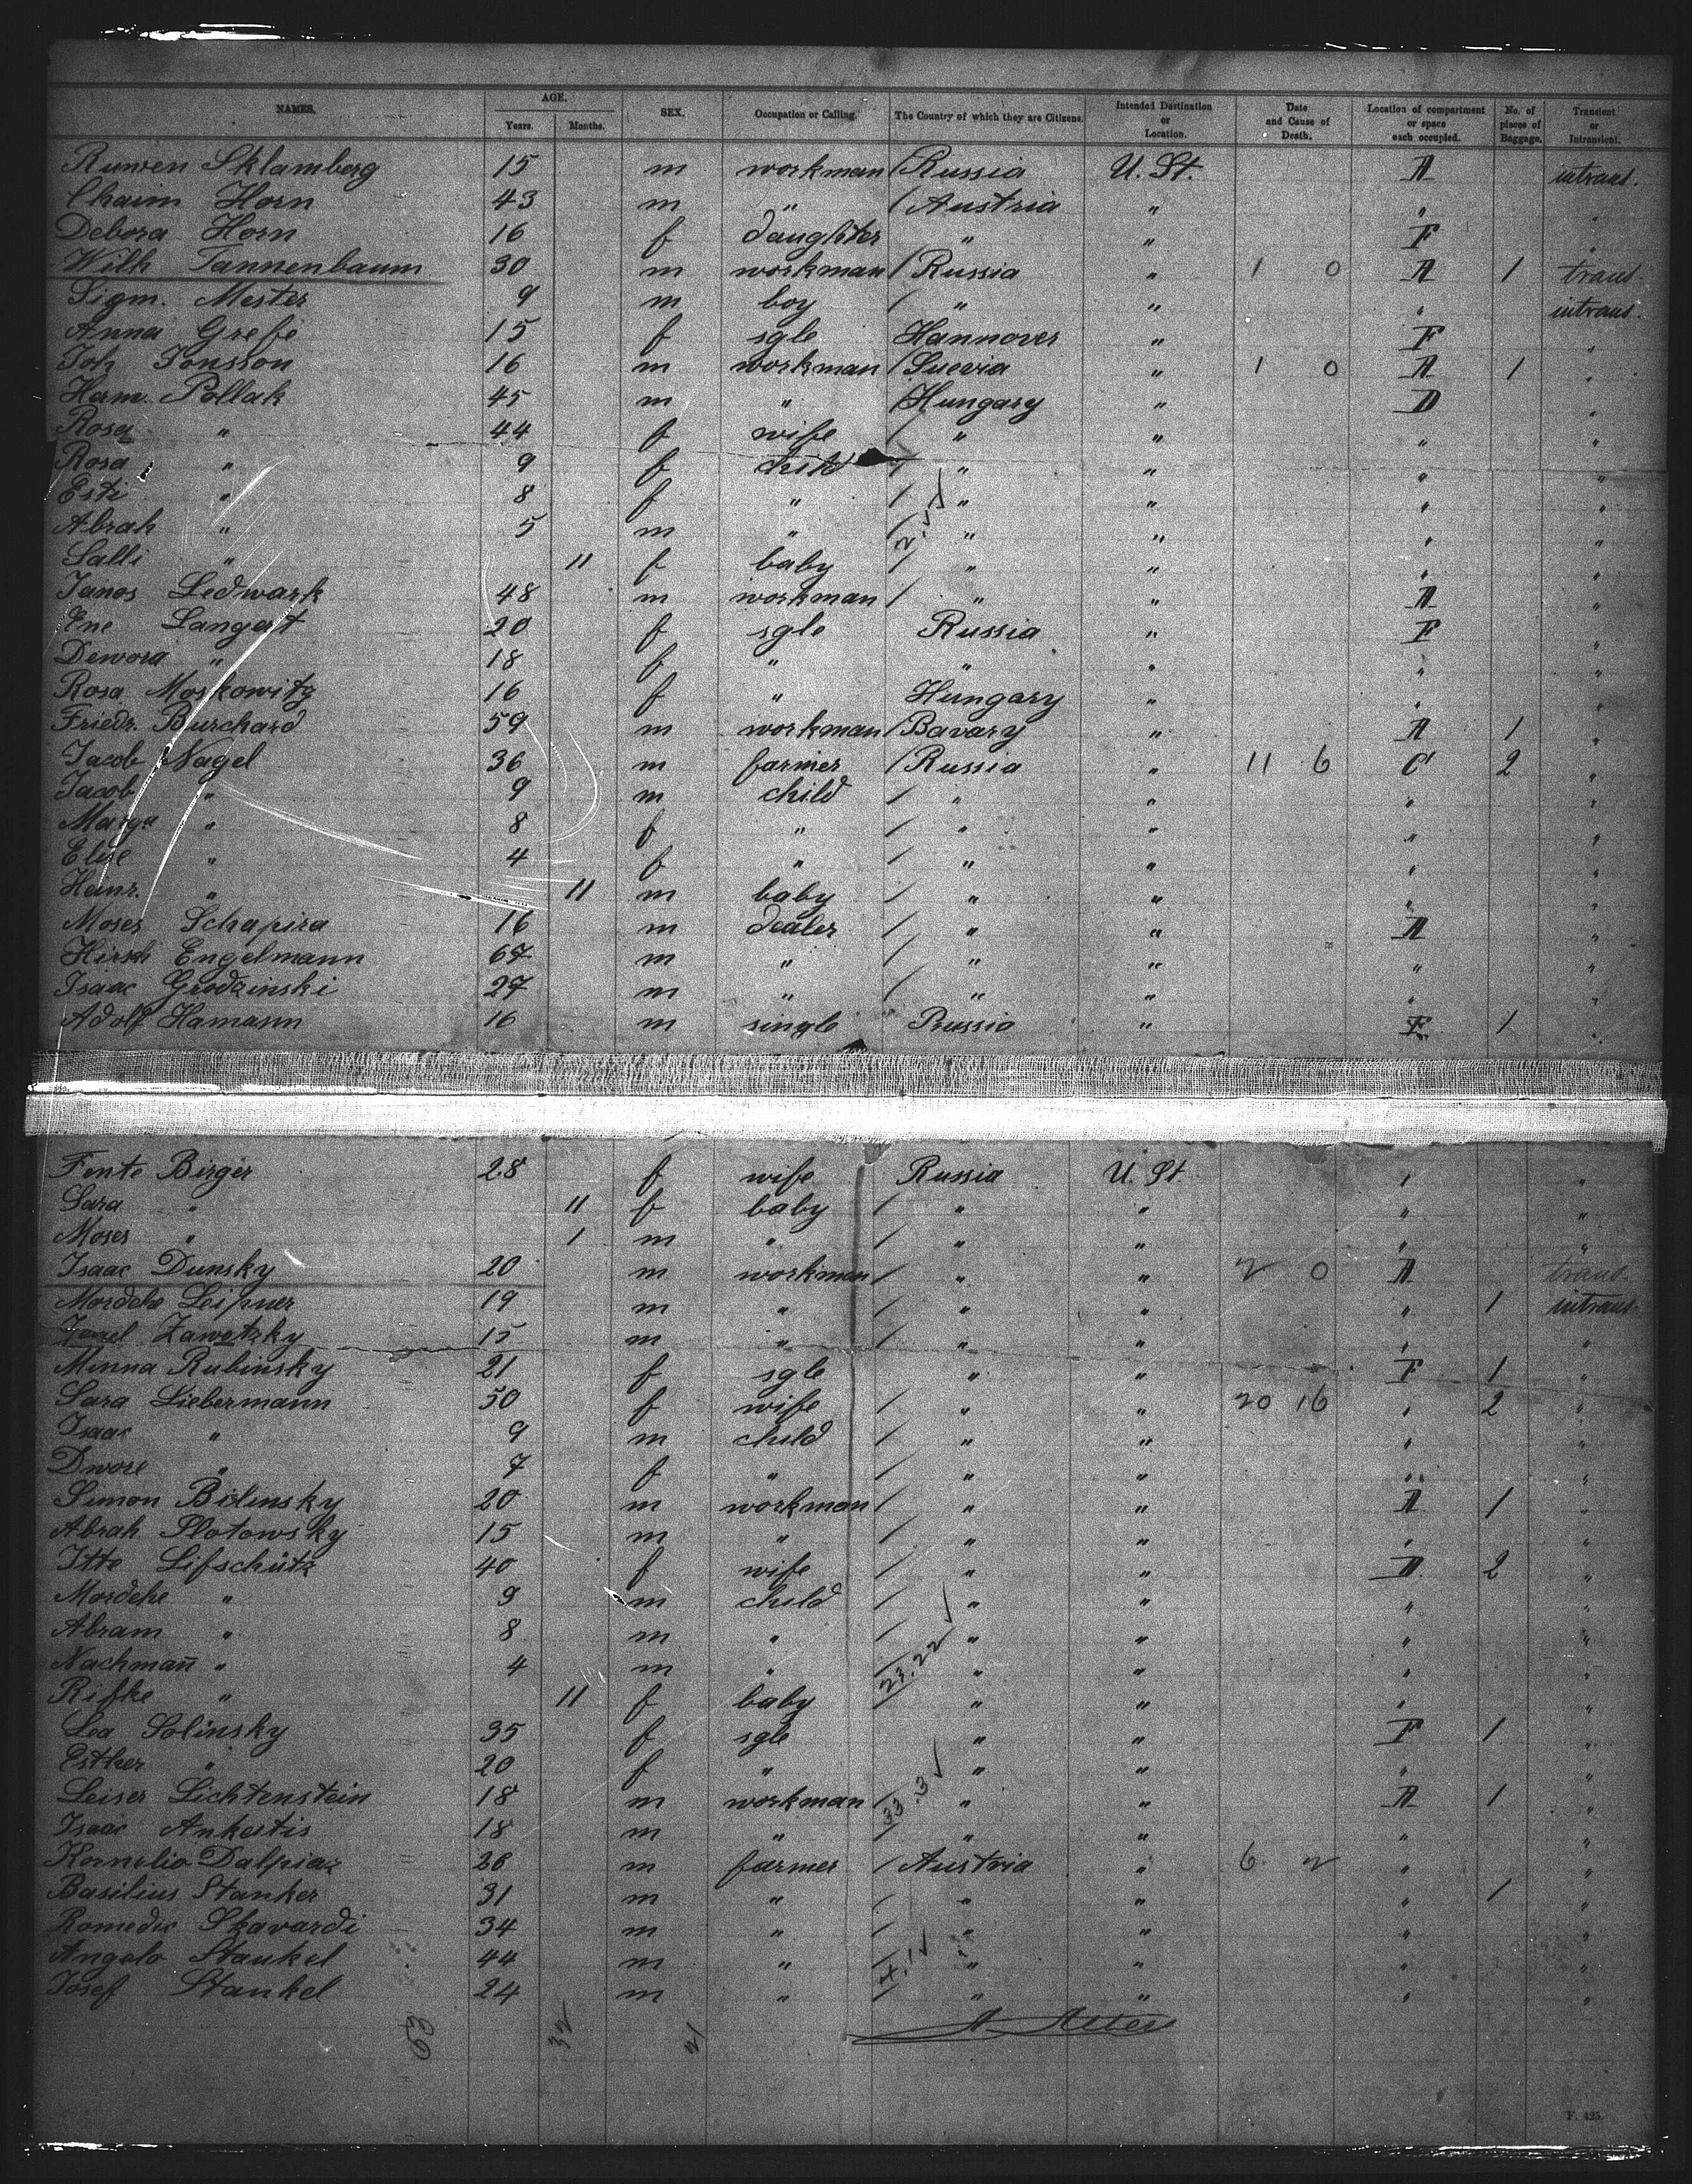 NAMES. AGE. Years. Months. SEX. Occupation or Calling. The Country of which they are Citizens. Intended Destination or Location. Date and Cause of Death. Location of compartment or space each occupied. No. of pieces of Baggage. Transient or Intransient.
Ruwen Sklamberg 15 m workman / Russia U. St. A intrans.
Chaim Horn 43 m " / Austria " " "
Debora Horn 16 f daughter " " F "
Wilh Tannenbaum 30 m workman / Russia " 1 0 A 1 trans.
Sigm. Mester 9 m boy / " " " intrans.
Anna Grefe 15 f sgle Hannover " F "
Joh Jonsson 16 m workman / Suecia " 1 0 A 1 "
Herm. Pollak 45 m " / Hungary " D "
Rosa " 44 f wife / " " " "
Rosa " 9 f child / " " " "
Esti " 8 f " / " " " "
Abrah " 5 m " / " " " "
Salli " 11 f baby / " " " "
Janos Ledwark 48 m workman / " " A "
Ene Langert 20 f sgle Russia " F "
Dewora " 18 f " " " " "
Rosa Moskowitz 16 f " Hungary " " "
Friedr. Burchard 59 m workman / Bavary " A 1 "
Jacob Nagel 36 m farmer / Russia " 11 6 C 2 "
Jacob " 9 m child / " " " "
Marga " 8 f " / " " " "
Elise " 4 f " / " " " "
Heinr. " 11 m baby / " " " "
Moses Schapira 16 m dealer / " " A "
Hirsch Engelmann 67 m " / " " " "
Isaac Grodzinski 27 m " / " " " "
Adolf Hamann 16 m single Prussia " F 1 "
Fente Birger 28 f wife Russia U. St. " "
Sara " 11 f baby / " " " "
Moses " 1 m " / " " " "
Isaac Dunsky 20 m workman / " " 2 0 A trans.
Mordche Leipner 19 m " / " " " 1 intrans.
Zawetzky 15 m " / " " " "
Minna Rubinsky 21 f sgle " " F 1 "
Sara Liebermann 50 f wife / " " 20 16 " 2 "
Isaac " 9 m child / " " " "
Dwore " 7 f " / " " " "
Simon Bilinsky 20 m workman / " " A 1 "
Abrah Plotowsky 15 m " / " " " "
Itte Lifschütz 40 f wife / " " D 2 "
Mordche " 9 m child / " " " "
Abram " 8 m " / " " " "
Nachmañ " 4 m " / " " " "
Rifke " 11 f baby / " " " "
Lea Solinsky 35 f sgle " " F 1 "
Esther " 20 f " " " " "
Leiser Lichtenstein 18 m workman / " " A 1 "
Isaac Ankestis 18 m " / " " " "
Kornelio Dalpiaz 26 m farmer / Austria " 6 2 " "
Basilius Stanker 31 m " / " " " 1 "
Romedio Skavardi 34 m " / " " " "
Angelo Stankel 44 m " / " " " "
Josef Stankel 24 m " / " " " "
53 32 21
F. 425.